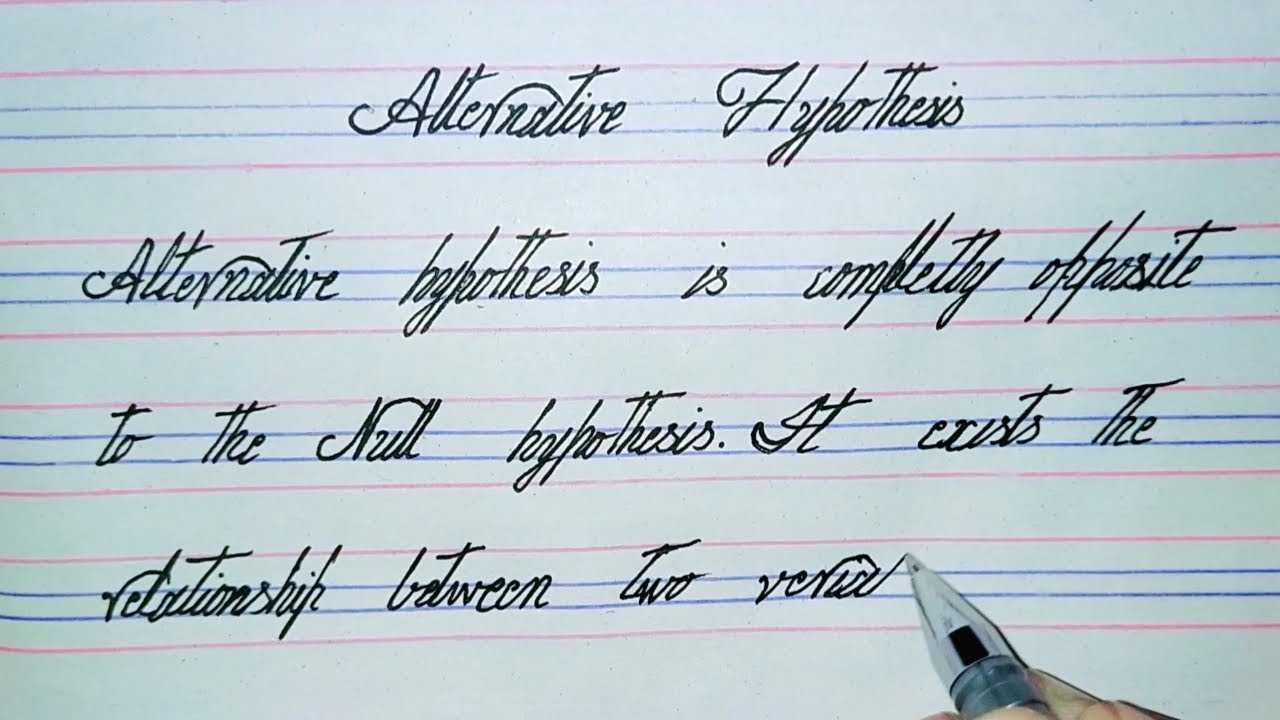 Alternative Hypothesis
Alternative hypothesis is completly opposite
to the Null hypothesis. It exists the
relationship between two veria